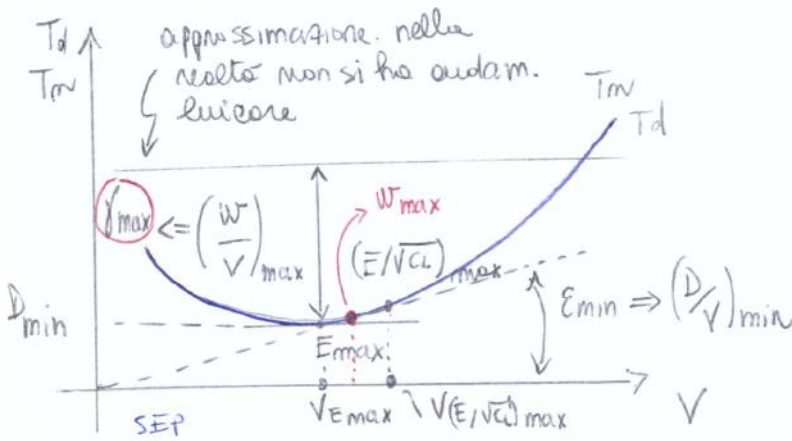 Td
Tm
approssimazione. nella
realtà non si ha andam.
lineare
Tm
Td
γmax <= (w/V)max
wmax
(E/√CL)max
Dmin
Emax
εmin ⇒ (D/V)min
VEmax
V(E/√CL)max
V
SEP